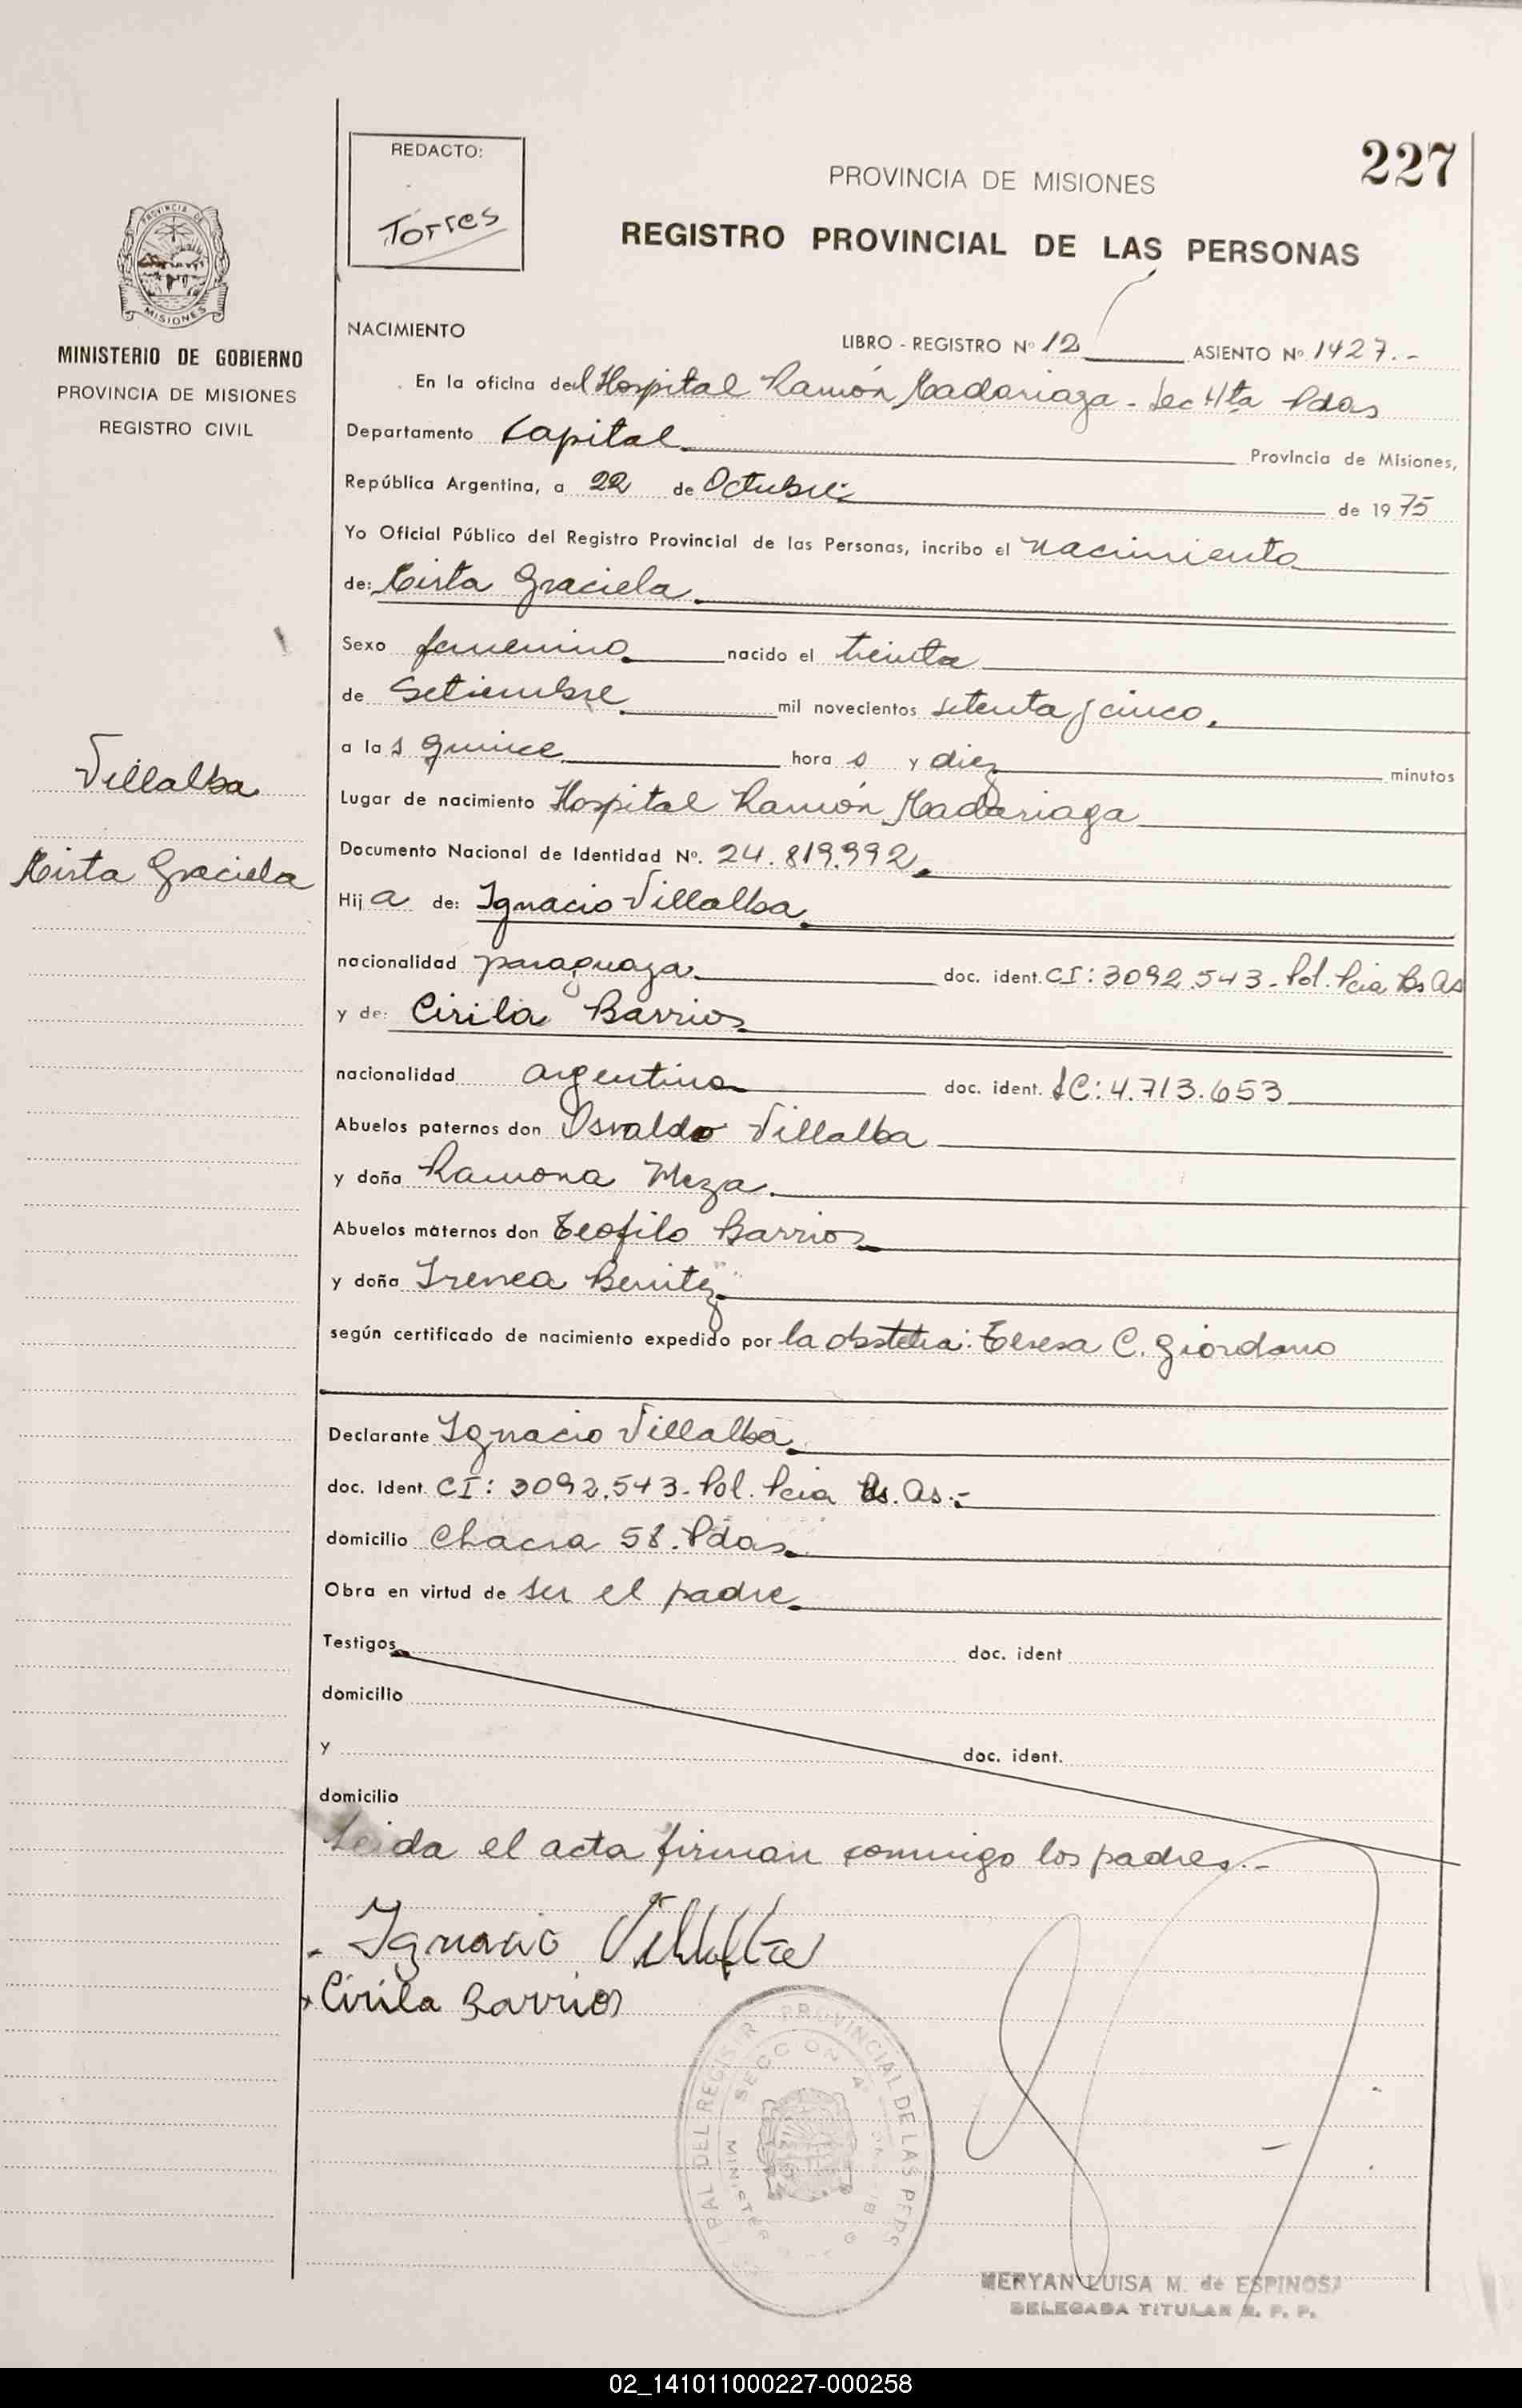 REDACTO:
Torres
PROVINCIA DE MISIONES
227
REGISTRO PROVINCIAL DE LAS PERSONAS
PROVINCIA DE
MISIONES
MINISTERIO DE GOBIERNO
PROVINCIA DE MISIONES
REGISTRO CIVIL
NACIMIENTO
LIBRO - REGISTRO Nº 12 ASIENTO Nº 1427.-
En la oficina del Hospital Ramón Madariaga - Sec 4ta Pdas
Departamento Capital Provincia de Misiones,
República Argentina, a 22 de Octubre de 1975
Yo Oficial Público del Registro Provincial de las Personas, incribo el nacimiento
de: Mirta Graciela
Sexo femenino nacido el treinta
de Setiembre mil novecientos setenta y cinco.
a las quince horas y diez minutos
Villalba
Mirta Graciela
Lugar de nacimiento Hospital Ramón Madariaga
Documento Nacional de Identidad Nº. 24.819.992
Hija de: Ignacio Villalba
nacionalidad paraguaya doc. ident. CI: 3092.543 - Pol. Pcia Bs As
y de: Cirila Barrios
nacionalidad argentina doc. ident. LC: 4.713.653
Abuelos paternos don Osvaldo Villalba
y doña Ramona Meza
Abuelos maternos don Teofilo Barrios
y doña Irenea Benitez
según certificado de nacimiento expedido por la obstetra: Teresa C. Giordano
Declarante Ignacio Villalba
doc. Ident. CI: 3092.543 - Pol. Pcia Bs. As.-
domicilio Chacra 58. Pdas
Obra en virtud de ser el padre
Testigos doc. ident
domicilio
y doc. ident.
domicilio
Leida el acta firman conmigo los padres.-
Ignacio Villalba
Cirila Barrios
PROVINCIAL DE LAS PERS
SECCION 4
MERYAN LUISA M. de ESPINOSA
DELEGADA TITULAR R. P. P.
02_141011000227-000258